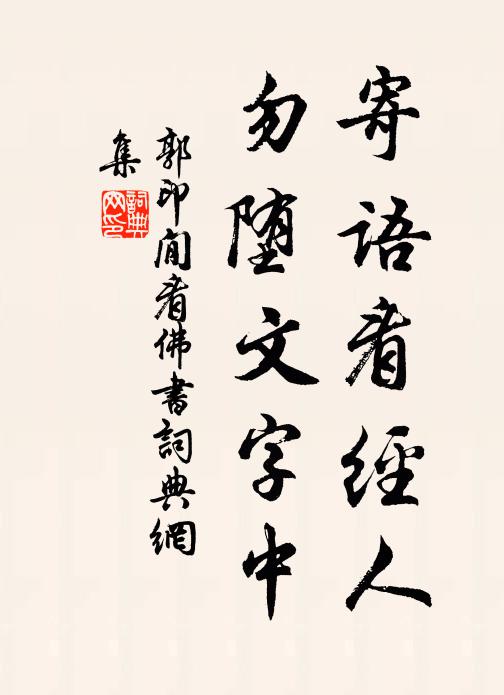 寄語看經人
勿堕文字中
郭印閒看佛書詞典網
集
詞典
网印